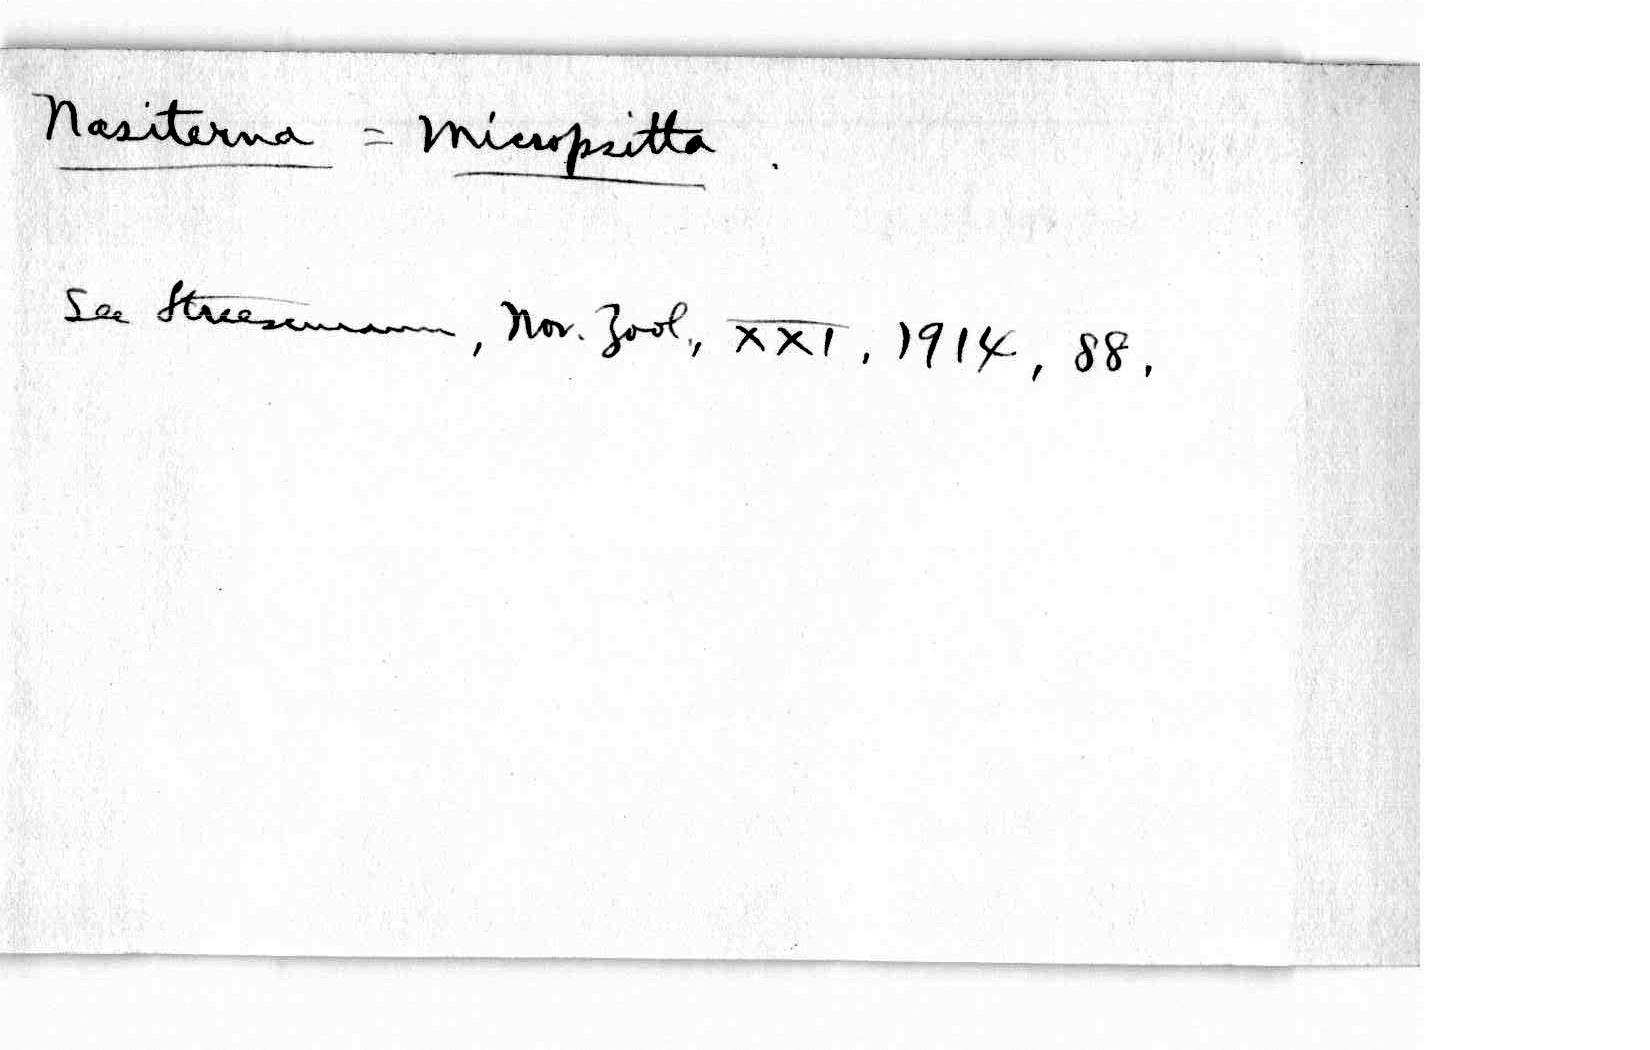 Nasiterna = Micropsitta.
See Streesemann, Nov. Zool., XXI, 1914, 88.